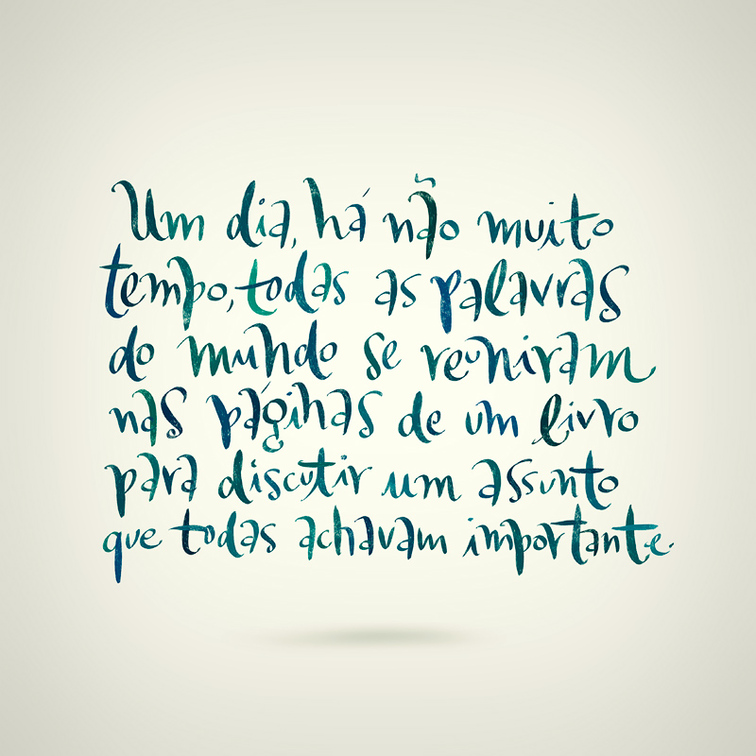 Um dia, há não muito
tempo, todas as palavras
do mundo se reuniram
nas páginas de um livro
para discutir um assunto
que todas achavam importante.